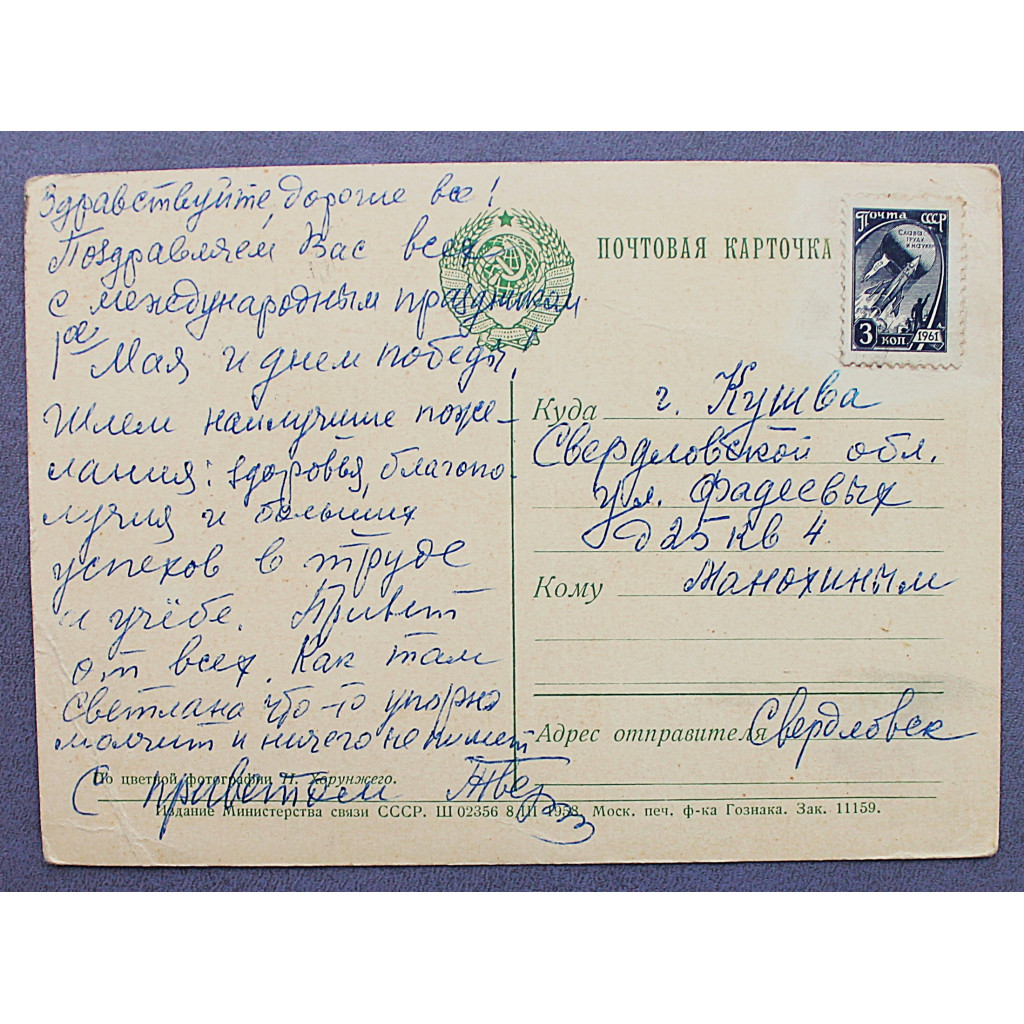 Здравствуйте дорогие все!
Поздравляем Вас всех
с международным праздником
1ое Мая и днем победы!
Шлем наилучшие поже-
лания: здоровья, благопо-
лучия и больших
успехов в труде
и учёбе. Привет
от всех. Как там
Светлана что-то упорно
молчит и ничего не пишет
С приветом
По цветной фотографии Н. Хорунжего.
ПОЧТОВАЯ КАРТОЧКА
ПОЧТА СССР
СЛАВА
ТРУДУ
И НАУКЕ
3 КОП. 1961
Куда г. Кушва
Свердловской обл.
ул. Фадеевых
д 25 кв 4
Кому Манохиным
Адрес отправителя Свердловск
Издание Министерства связи СССР. Ш 02356 8/III 1958. Моск. печ. ф-ка Гознака. Зак. 11159.